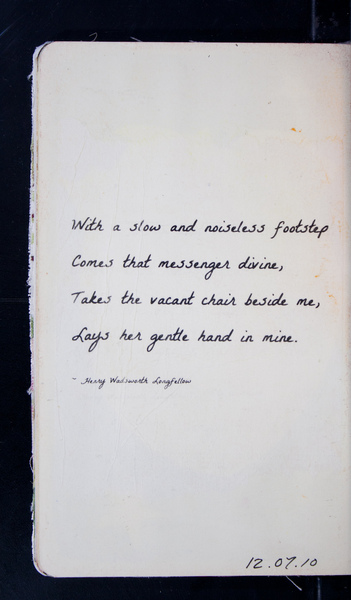 With a slow and noiseless footstep
Comes that messenger divine,
Takes the vacant chair beside me,
Lays her gentle hand in mine.
- Henry Wadsworth Longfellow
12.07.10